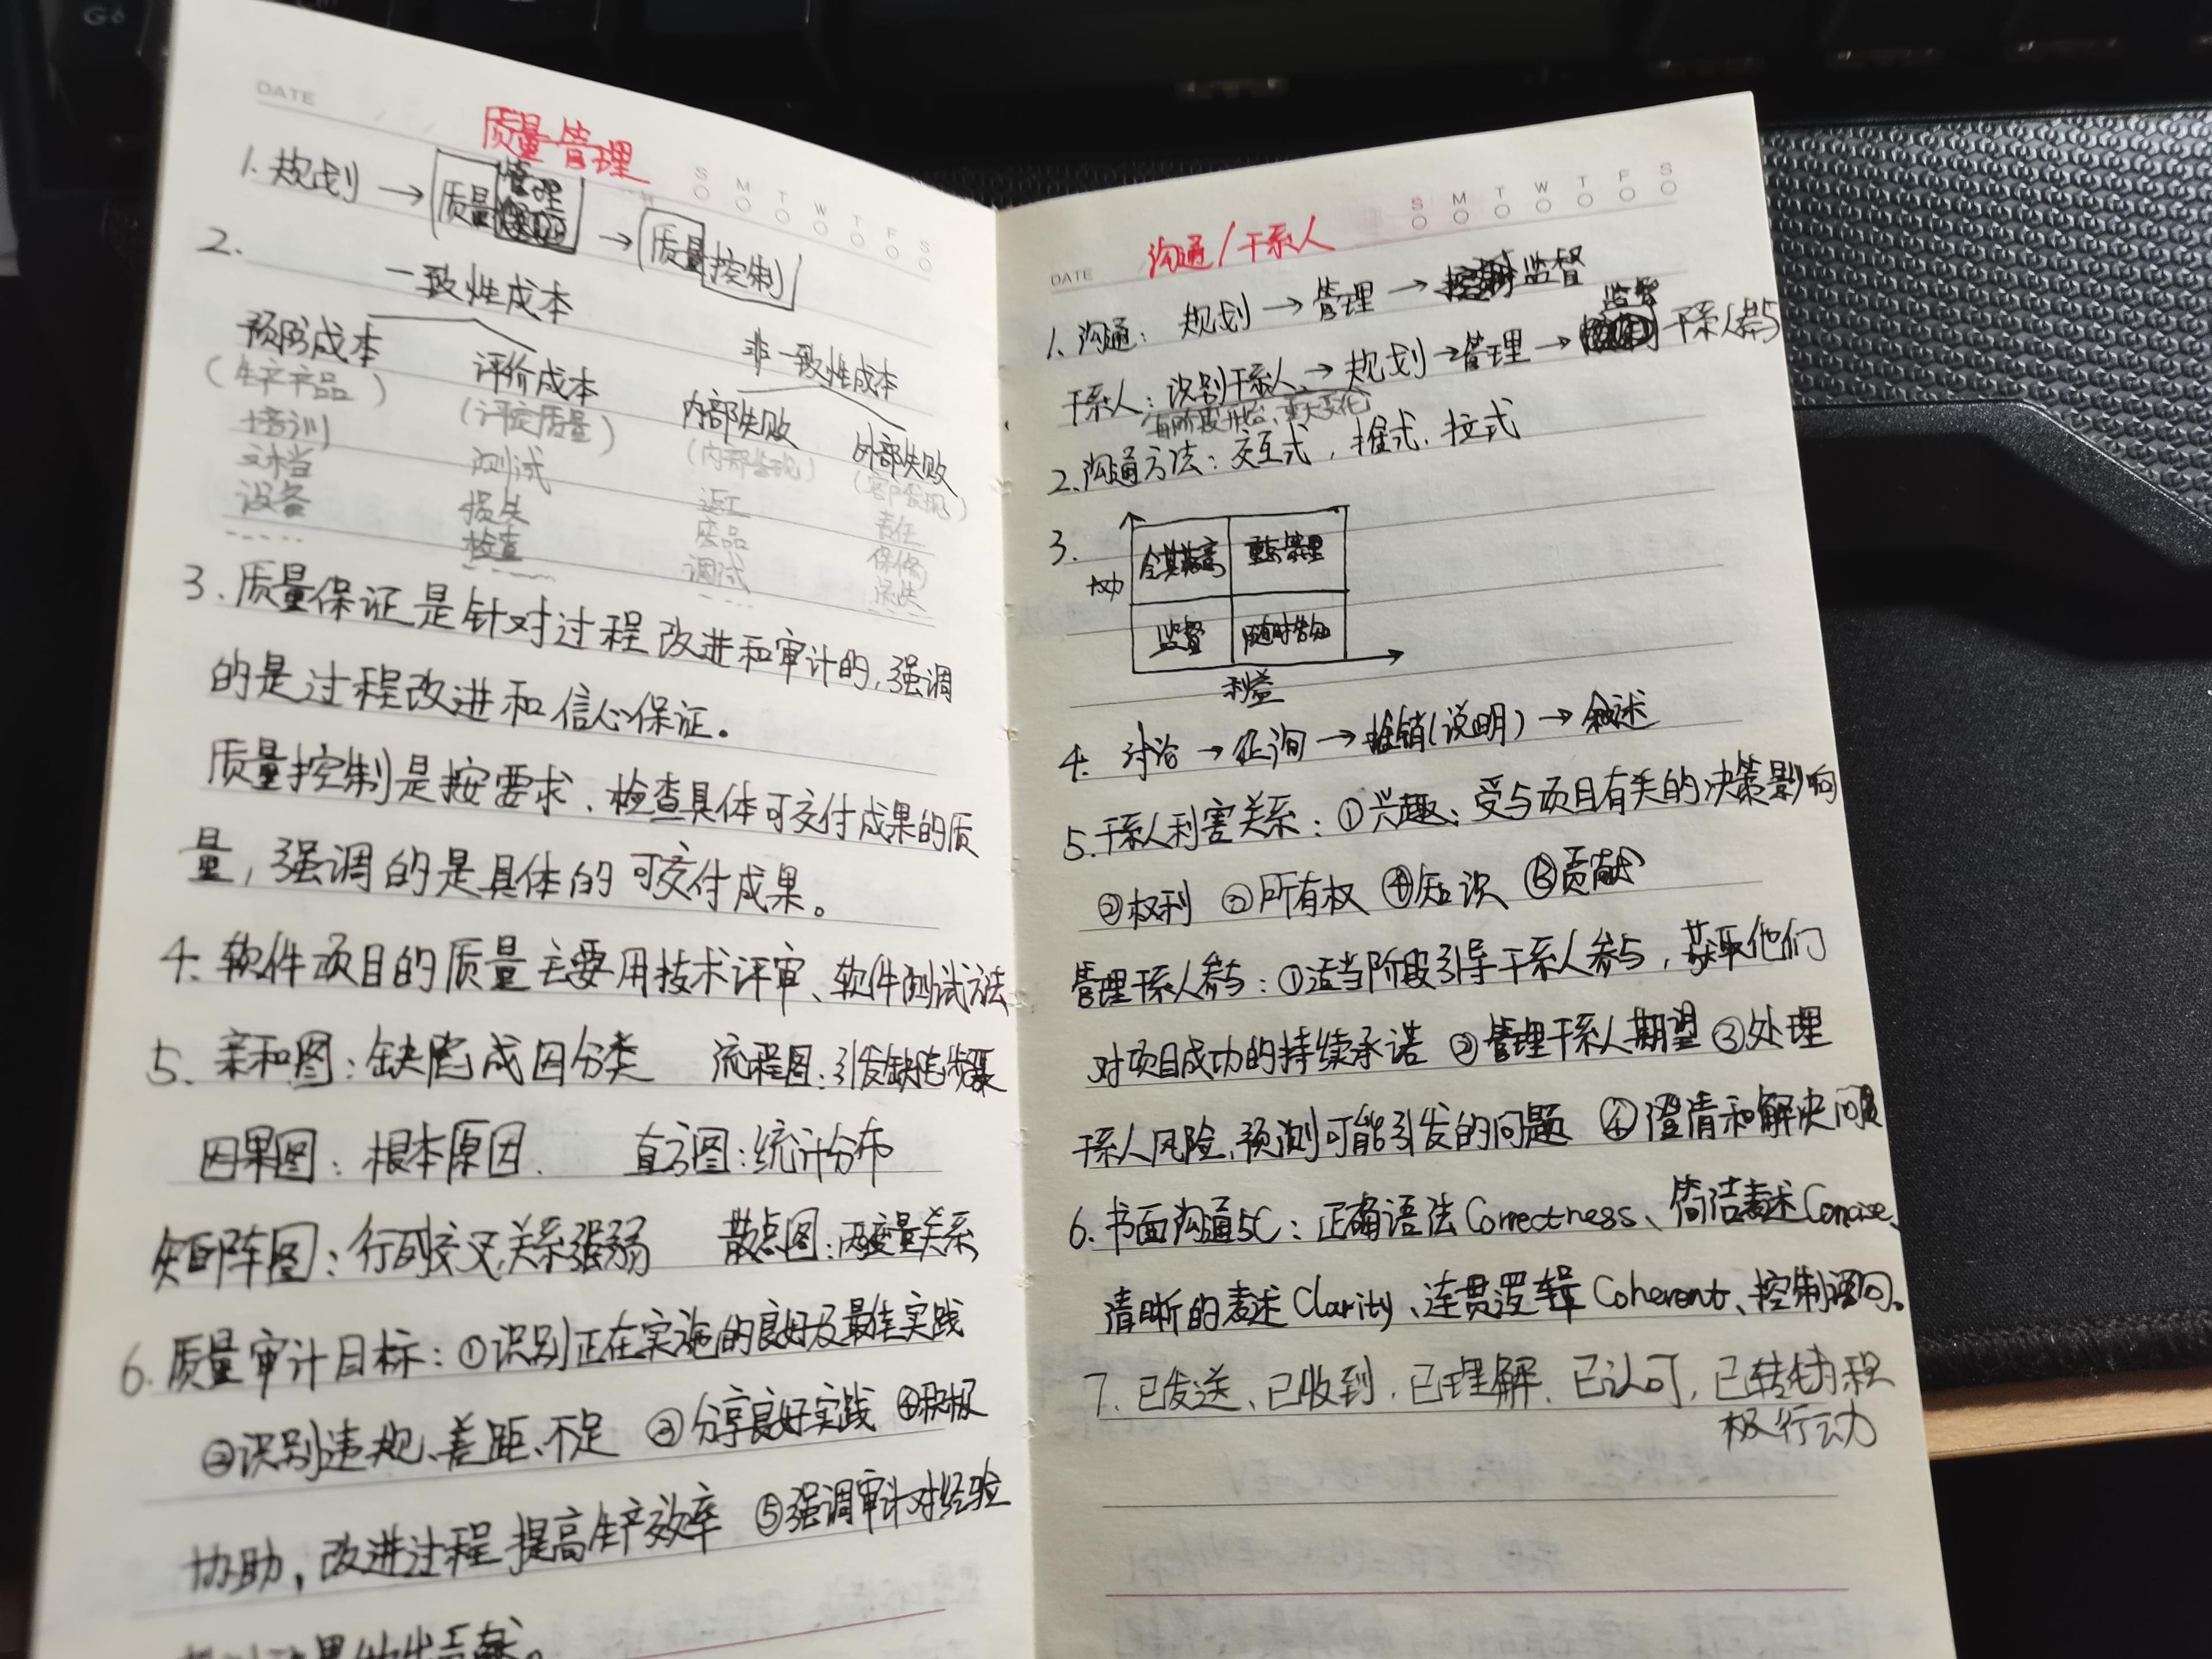 DATE
质量管理
S M T W T F S
1. 规划 → 质量管理 → 质量控制
2.
一致性成本
非一致性成本
预防成本 评价成本 内部失败 外部失败
(生产产品) (评定质量) (内部发现) (客户发现)
培训 测试 返工 责任
文档 损失 废品 保修
设备 检查 调试 损失
3. 质量保证是针对过程改进和审计的,强调
的是过程改进和信心保证。
质量控制是按要求、检查具体可交付成果的质
量,强调的是具体的可交付成果。
4. 软件项目的质量主要用技术评审、软件测试方法
5. 亲和图:缺陷成因分类 流程图:引发缺陷步骤
因果图:根本原因. 直方图:统计分布
矩阵图:行列交叉,关系强弱 散点图:两变量关系
6. 质量审计目标:①识别正在实施的良好及最佳实践
②识别违规、差距、不足 ③分享良好实践 ④积极
协助,改进过程 提高生产效率 ⑤强调审计对经验
DATE
沟通/干系人
S M T W T F S
1. 沟通: 规划 → 管理 → 监督
干系人:识别干系人 → 规划 → 管理 → 监督干系人参与
每阶段开始、重大变化
2. 沟通方法:交互式,推式、拉式
3.
权力
令其满意 重点管理
监督 随时告知
利益
4. 讨论 → 征询 → 推销(说明) → 叙述
5. 干系人利害关系:①兴趣:受与项目有关的决策影响
②权利 ③所有权 ④知识 ⑤贡献
管理干系人参与:①适当阶段引导干系人参与,获取他们
对项目成功的持续承诺 ②管理干系人期望 ③处理
干系人风险,预测可能引发的问题 ④澄清和解决问题
6. 书面沟通5C:正确语法Correctness、简洁表述Concise、
清晰的表述Clarity、连贯逻辑Coherent、控制语句。
7. 已发送、已收到、已理解、已认可,已转化为积
极行动